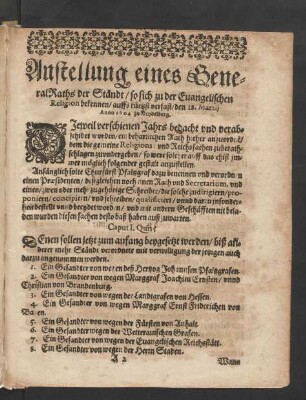 Anstellung eines Gene-
ral Raths der Ständt / so sich zu der Euangelischen
Religion bekennen / auffs kürtzst verfast / den 18. Martij
Anno 1604 zu Heydelberg.
Jeweil verschienen Jahrs bedacht vnd verab-
schiedet worden ein beharrlichen Rath hieher anzuord-
dem die gemeine Religions: vnd Reichssachen zuberath-
schlagen zuvndergeben / so were solcher auff das ehist jm-
mer möglich folgender gestalt anzustellen.
Anfänglich solte Churfürst Pfaltzgraf dazu benennen vnd verordnen
einen Præsidenten / deßgleichen noch einen Rath vnd Secretarium, vnd
einen / zwen oder mehr zugehörige Schreiber / die solche zu dirigirn / pro-
poniren / concipirn / vnd schreiben / qualificiert / vnnd darzu infonder-
heit bestellt vnd verpflichtet worden / vnd mit andern Geschäfften nit bela-
den wurden diesen sachen desto baß haben auffzuwarten.
Caput I. Quis?
DEnen sollen jetzt zum anfang beygesetzt werden / biß an-
derer mehr Ständt verordnete mit verwilligung der jenigen auch
darzu angenommen werden.
1. Ein Gesandter von wegen deß Hertzog Johannsen Pfaltzgrafen.
2. Ein Gesandter von wegen Marggraf Joachim Ernsten / vnnd
Christian von Brandenburg.
3. Ein Gesandter von wegen der Landgrafen von Hessen.
4. Ein Gesandter von wegen Marggraf Ernst Friderichen von
Baden.
5. Ein Gesandter von wegen der Fürsten von Anhalt.
6. Ein Gesandter wegen der Wetterauischen Grafen.
7. Ein Gesandter von wegen der Euangelischen Reichsstätt.
8. Ein Gesandter von wegen der Herrn Staden.
A 2 Wann